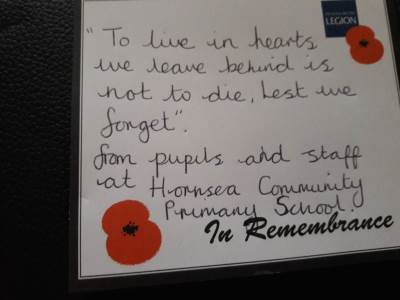 LEGION
"To live in hearts
we leave behind is
not to die, Lest we
forget".
from pupils and staff
at Hornsea Community
Primary School.
In Remembrance